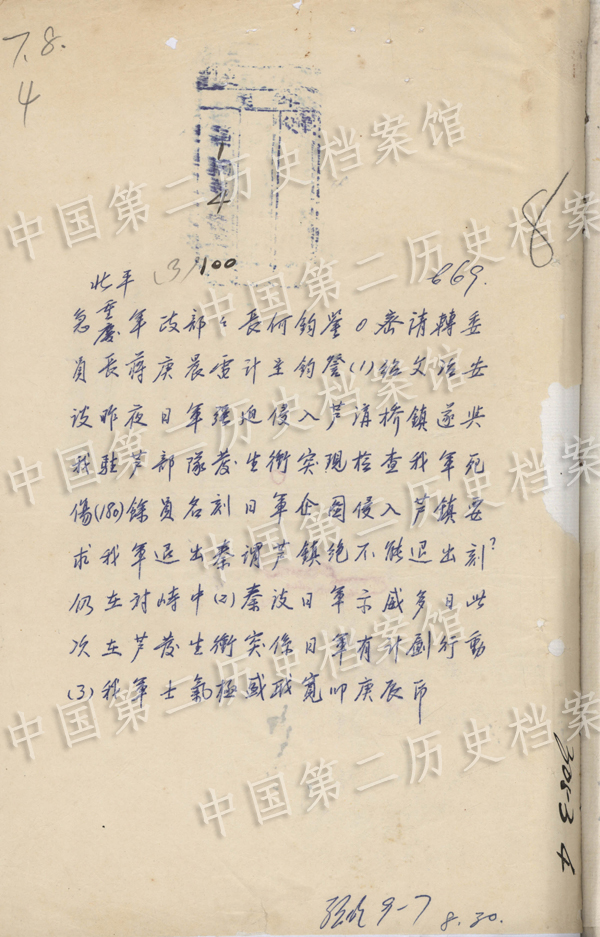 7.8.
4
8
北平 (3)/100 669.
急重慶軍政部々長何鈞鑒0密請轉委
員長蔣庚晨電計呈鈞詧(1)綏文治安
谈昨夜日軍强迫侵入芦溝桥镇遂与
我駐芦部隊發生衝突現检查我軍死
傷(180)餘員名刻日軍企图侵入芦鎮要
求我軍退出秦谓芦鎮绝不能退出刻?
仍在对峙中(2)秦谈日軍示威多日此
次在芦發生衝突係日軍有計劃行動
(3)我軍士氣極盛职寬叩庚辰印
3053 4
9-7 8.30.
中国第二历史档案馆